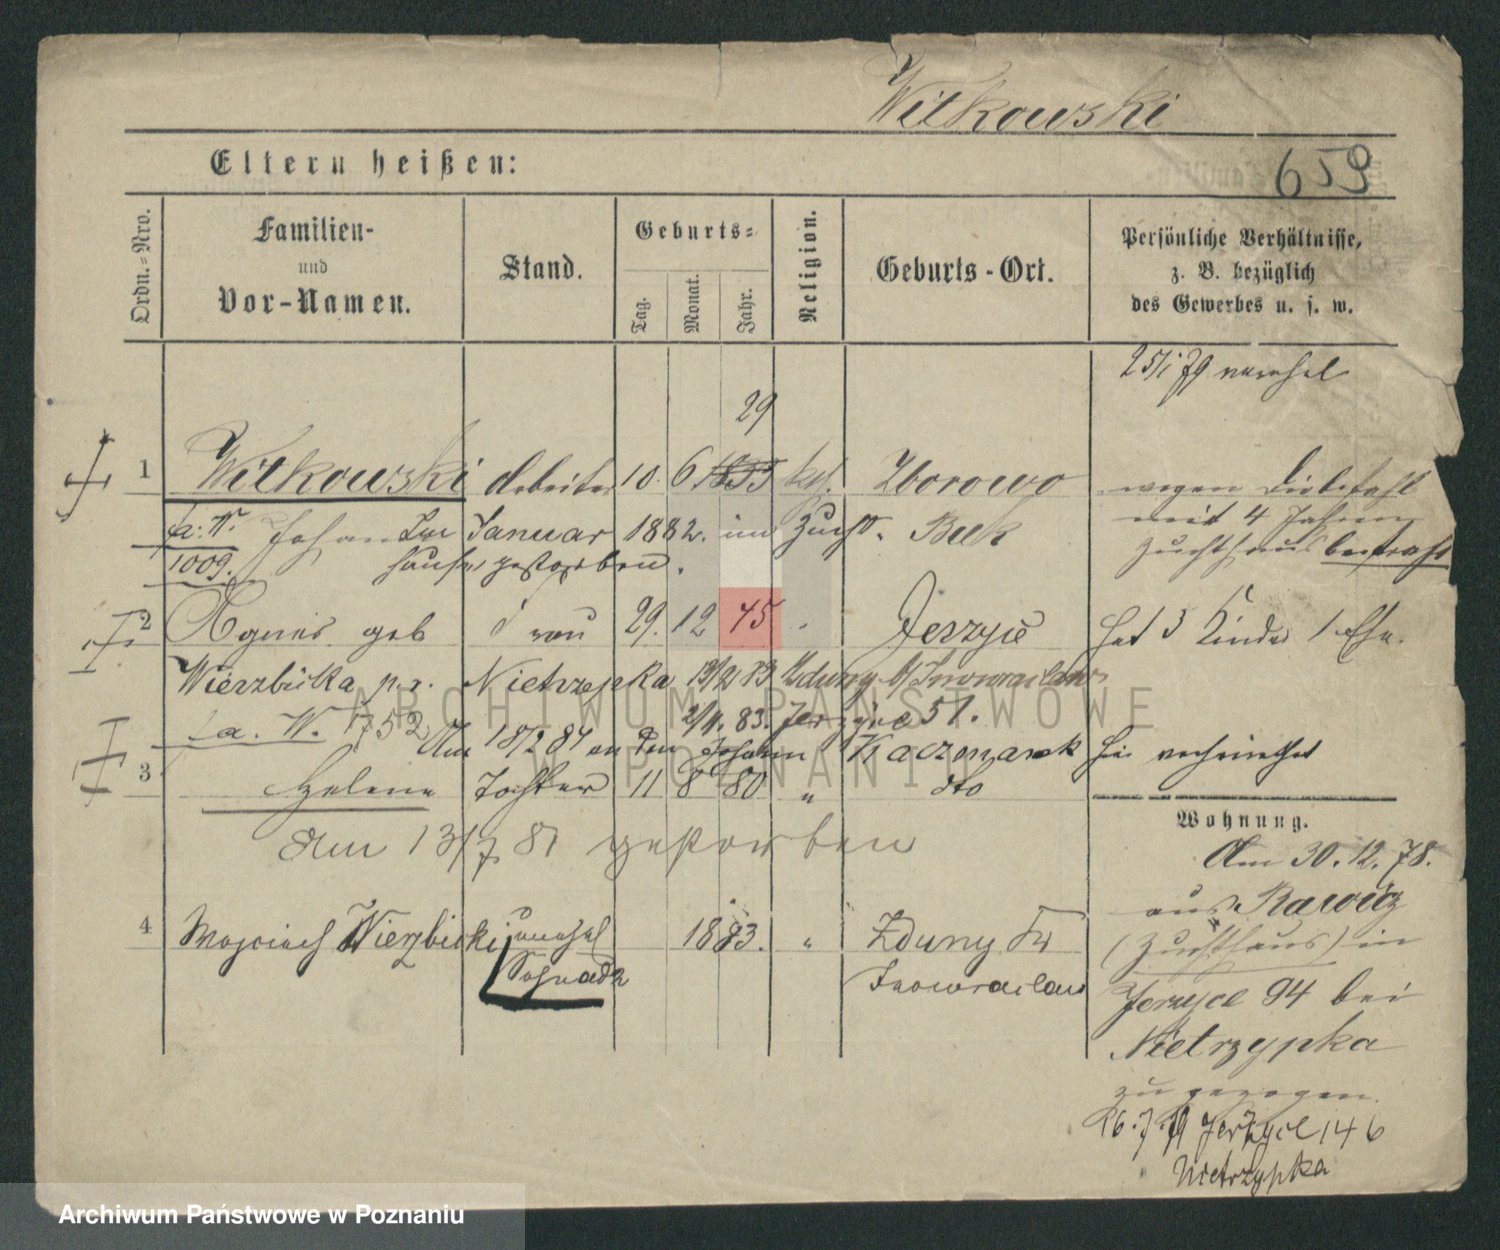 Witkowski
Eltern heißen:
659
Ordn.=Nro.
Familien-
und
Vor-Namen.
Stand.
Geburts=
Tag.
Monat.
Jahr.
Religion.
Geburts-Ort.
Persönliche Verhältnisse,
z. B. bezüglich
des Gewerbes u. s. w.
25/1 79
29
1 Witkowski Arbeiter 10. 6 1833 kat. Zborowo wegen Diebstahl
a: W. Johann Januar 1882. im Zucht. Buk mit 4 Jahren
1009. hause gestorben. Zuchthaus bestraft
2 Agnes geb Frau 29. 12 45 Jerzyce hat 3 Kinder 1 Ehe.
Wierzbicka p. r. Nietrzepka Zduny b/ Inowraclaw
2/4. 83. Jerzyce 51.
a. W. 1752 Am 18/2 84 an den Johann Kaczmarek hier verheirathet
3 Helene Tochter 11 8 80 " dto
Am 13/7 81 gestorben
Wohnung.
Am 30. 12. 78.
aus Rawicz
4 Wojciech Wierzbicki unehel 1883. " Zduny Kr
(Zuchthaus) in
Sohn ad 2 Inowraclaw
Jerzyce 94 bei
Nietrzypka
zu gezogen.
26. 7. 79 Jerzyce 146
Nietrzypka
ARCHIWUM PAŃSTWOWE
W POZNANIU
Archiwum Państwowe w Poznaniu